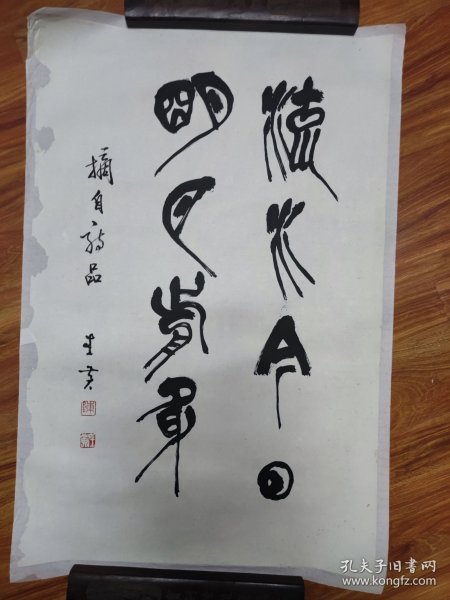 流水今日
明月前身
摘自詩品
孔夫子旧书网
www.kongfz.com